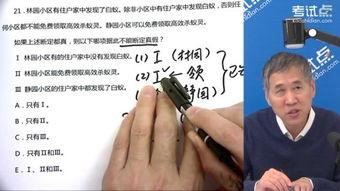 考试点
www.kaoshidian.com
21. 林园小区有住户家中发现了白蚁。除非小区中有住户家中发现白蚁，否则任
何小区都不能免费领取高效杀蚁灵。静园小区可以免费领取高效杀蚁灵。
如果上述断定都真，则以下哪项据此不能断定真假？
I 林园小区有的住户家中没有发现白蚁。
II 林园小区能免费领取高效杀蚁灵。
III 静园小区的住户家中都发现了白蚁。
A. 只有 I。
B. 只有 II。
C. 只有 III。
D. 只有 II和III。
E. I、II和III。
(1) I (林园)
(2) I ← 领
静园)
考试点